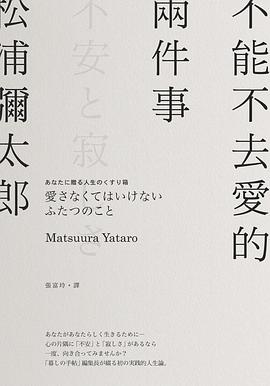 不能不去愛的
兩件事
不安と寂しさ
松浦彌太郎
あなたに贈る人生のくすり箱
愛さなくてはいけない
ふたつのこと
Matsuura Yataro
張富玲·譯
あなたがあなたらしく生きるために―
心の片隅に「不安」と「寂しさ」があるなら
一度、向き合ってみませんか？
「暮しの手帖」編集長が綴る初の実践的人生論。